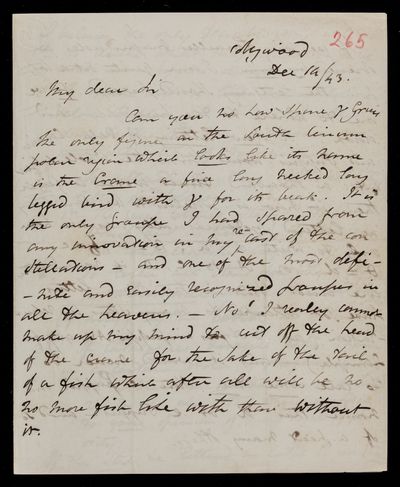 265
Collingwood
Dec 12/43.
My dear Sir
Can you not how spare γ Gruis
the only figure in the South circum
polar region which looks like its name
is the Crane a fine long necked long
legged bird with γ for its beak. It is
the only groupe I had spared from
any innovation in my re-cast of the con
stellations – and one of the most defi-
-nite and easily recognized groupes in
all the heavens. – No! I really cannot
make up my mind to cut off the head
of the crane for the sake of the tail
of a fish which after all will be no
no more fish like with than without
it.